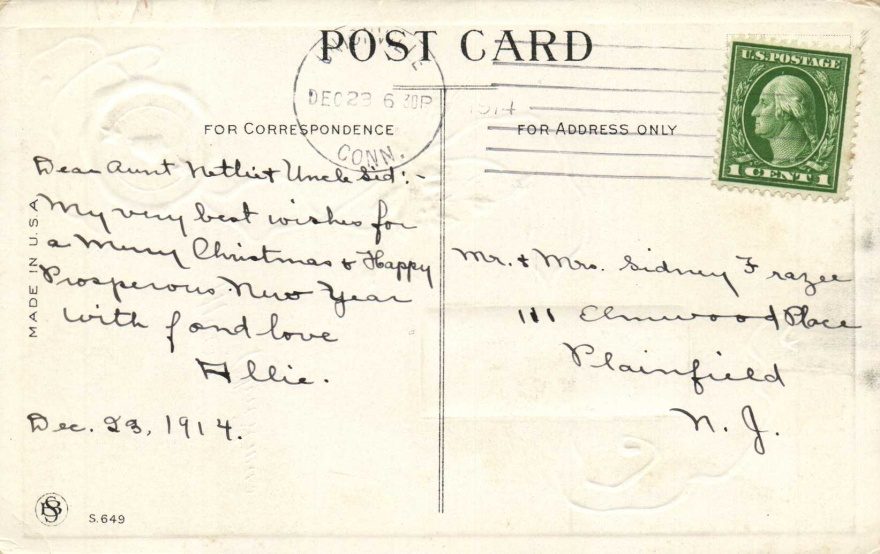 POST CARD
DEC 23 6 30P
1914
CONN.
U.S. POSTAGE
1 CENT 1
FOR CORRESPONDENCE
FOR ADDRESS ONLY
Dear Aunt Nettie & Uncle Sid:-
My very best wishes for
a Merry Christmas & Happy
Prosperous New Year
with fond love
Allie.
Dec. 23, 1914.
MADE IN U.S.A
Mr. & Mrs. Sidney Frazee
111 Elmwood Place
Plainfield
N. J.
S.649